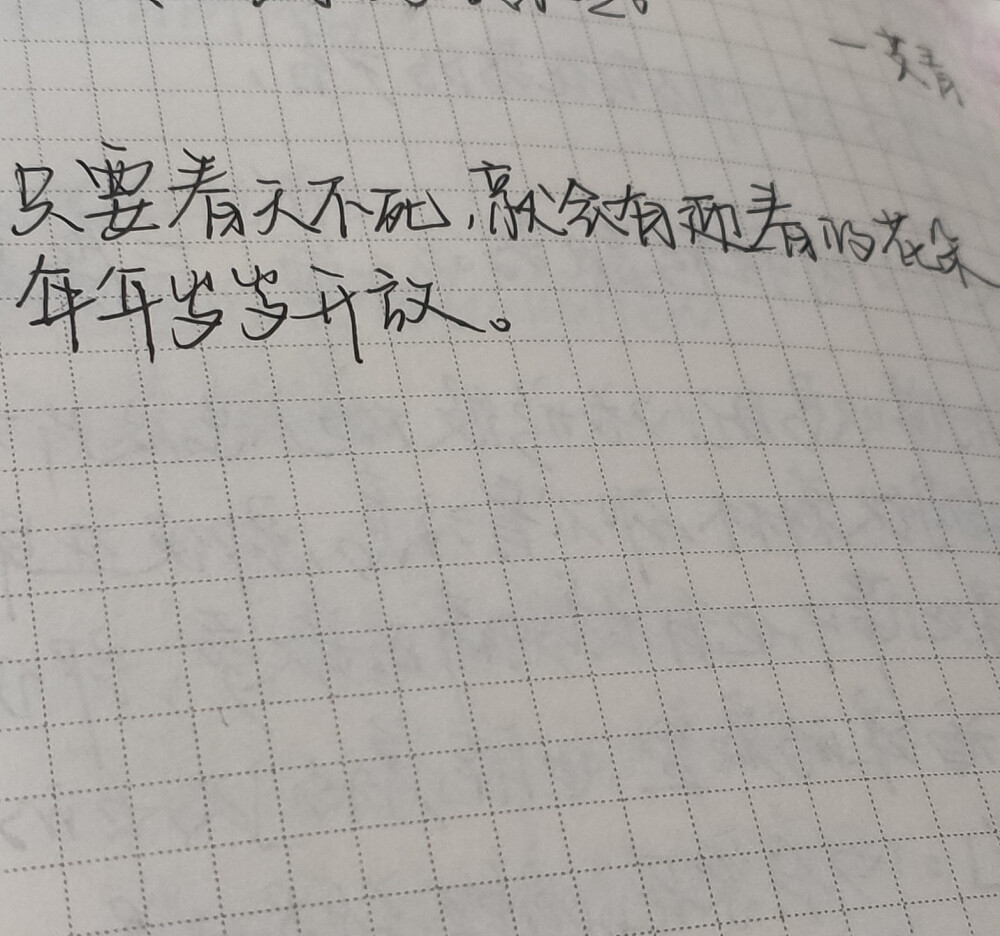 只要春天不死，就会有迎春的花朵
年年岁岁开放。